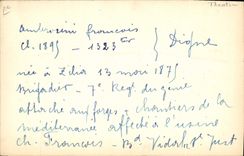 Théatre
Ambrosini francois
cl. 1895 — 1323 } Digne
née à 13 mai 1875
Brigadier — 7e Regt du génie
attaché aux forges & chantiers de la
méditerranée affecté à l'usine
ch. Francois — Bd Vidal St Just